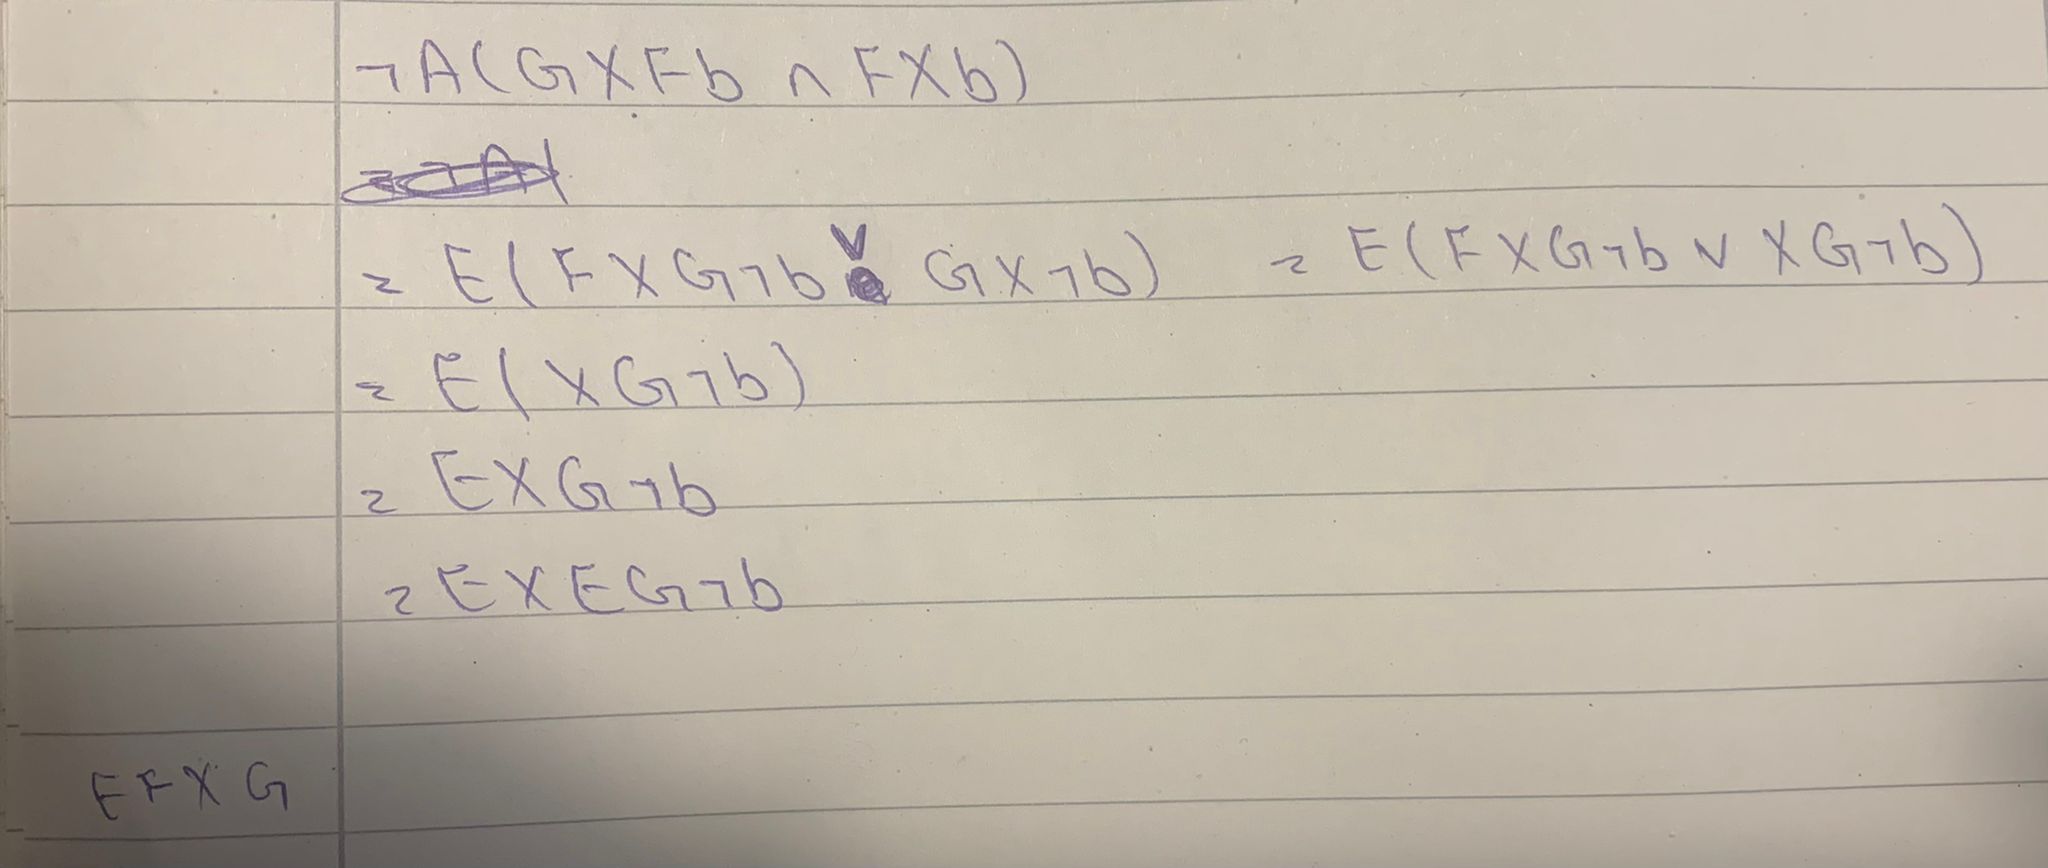 ¬A(GXFb ∧ FXb)
= E(FXG¬b ∨ GX¬b) = E(FXG¬b ∨ XG¬b)
= E(XG¬b)
= EXG¬b
= EXEG¬b
EFXG